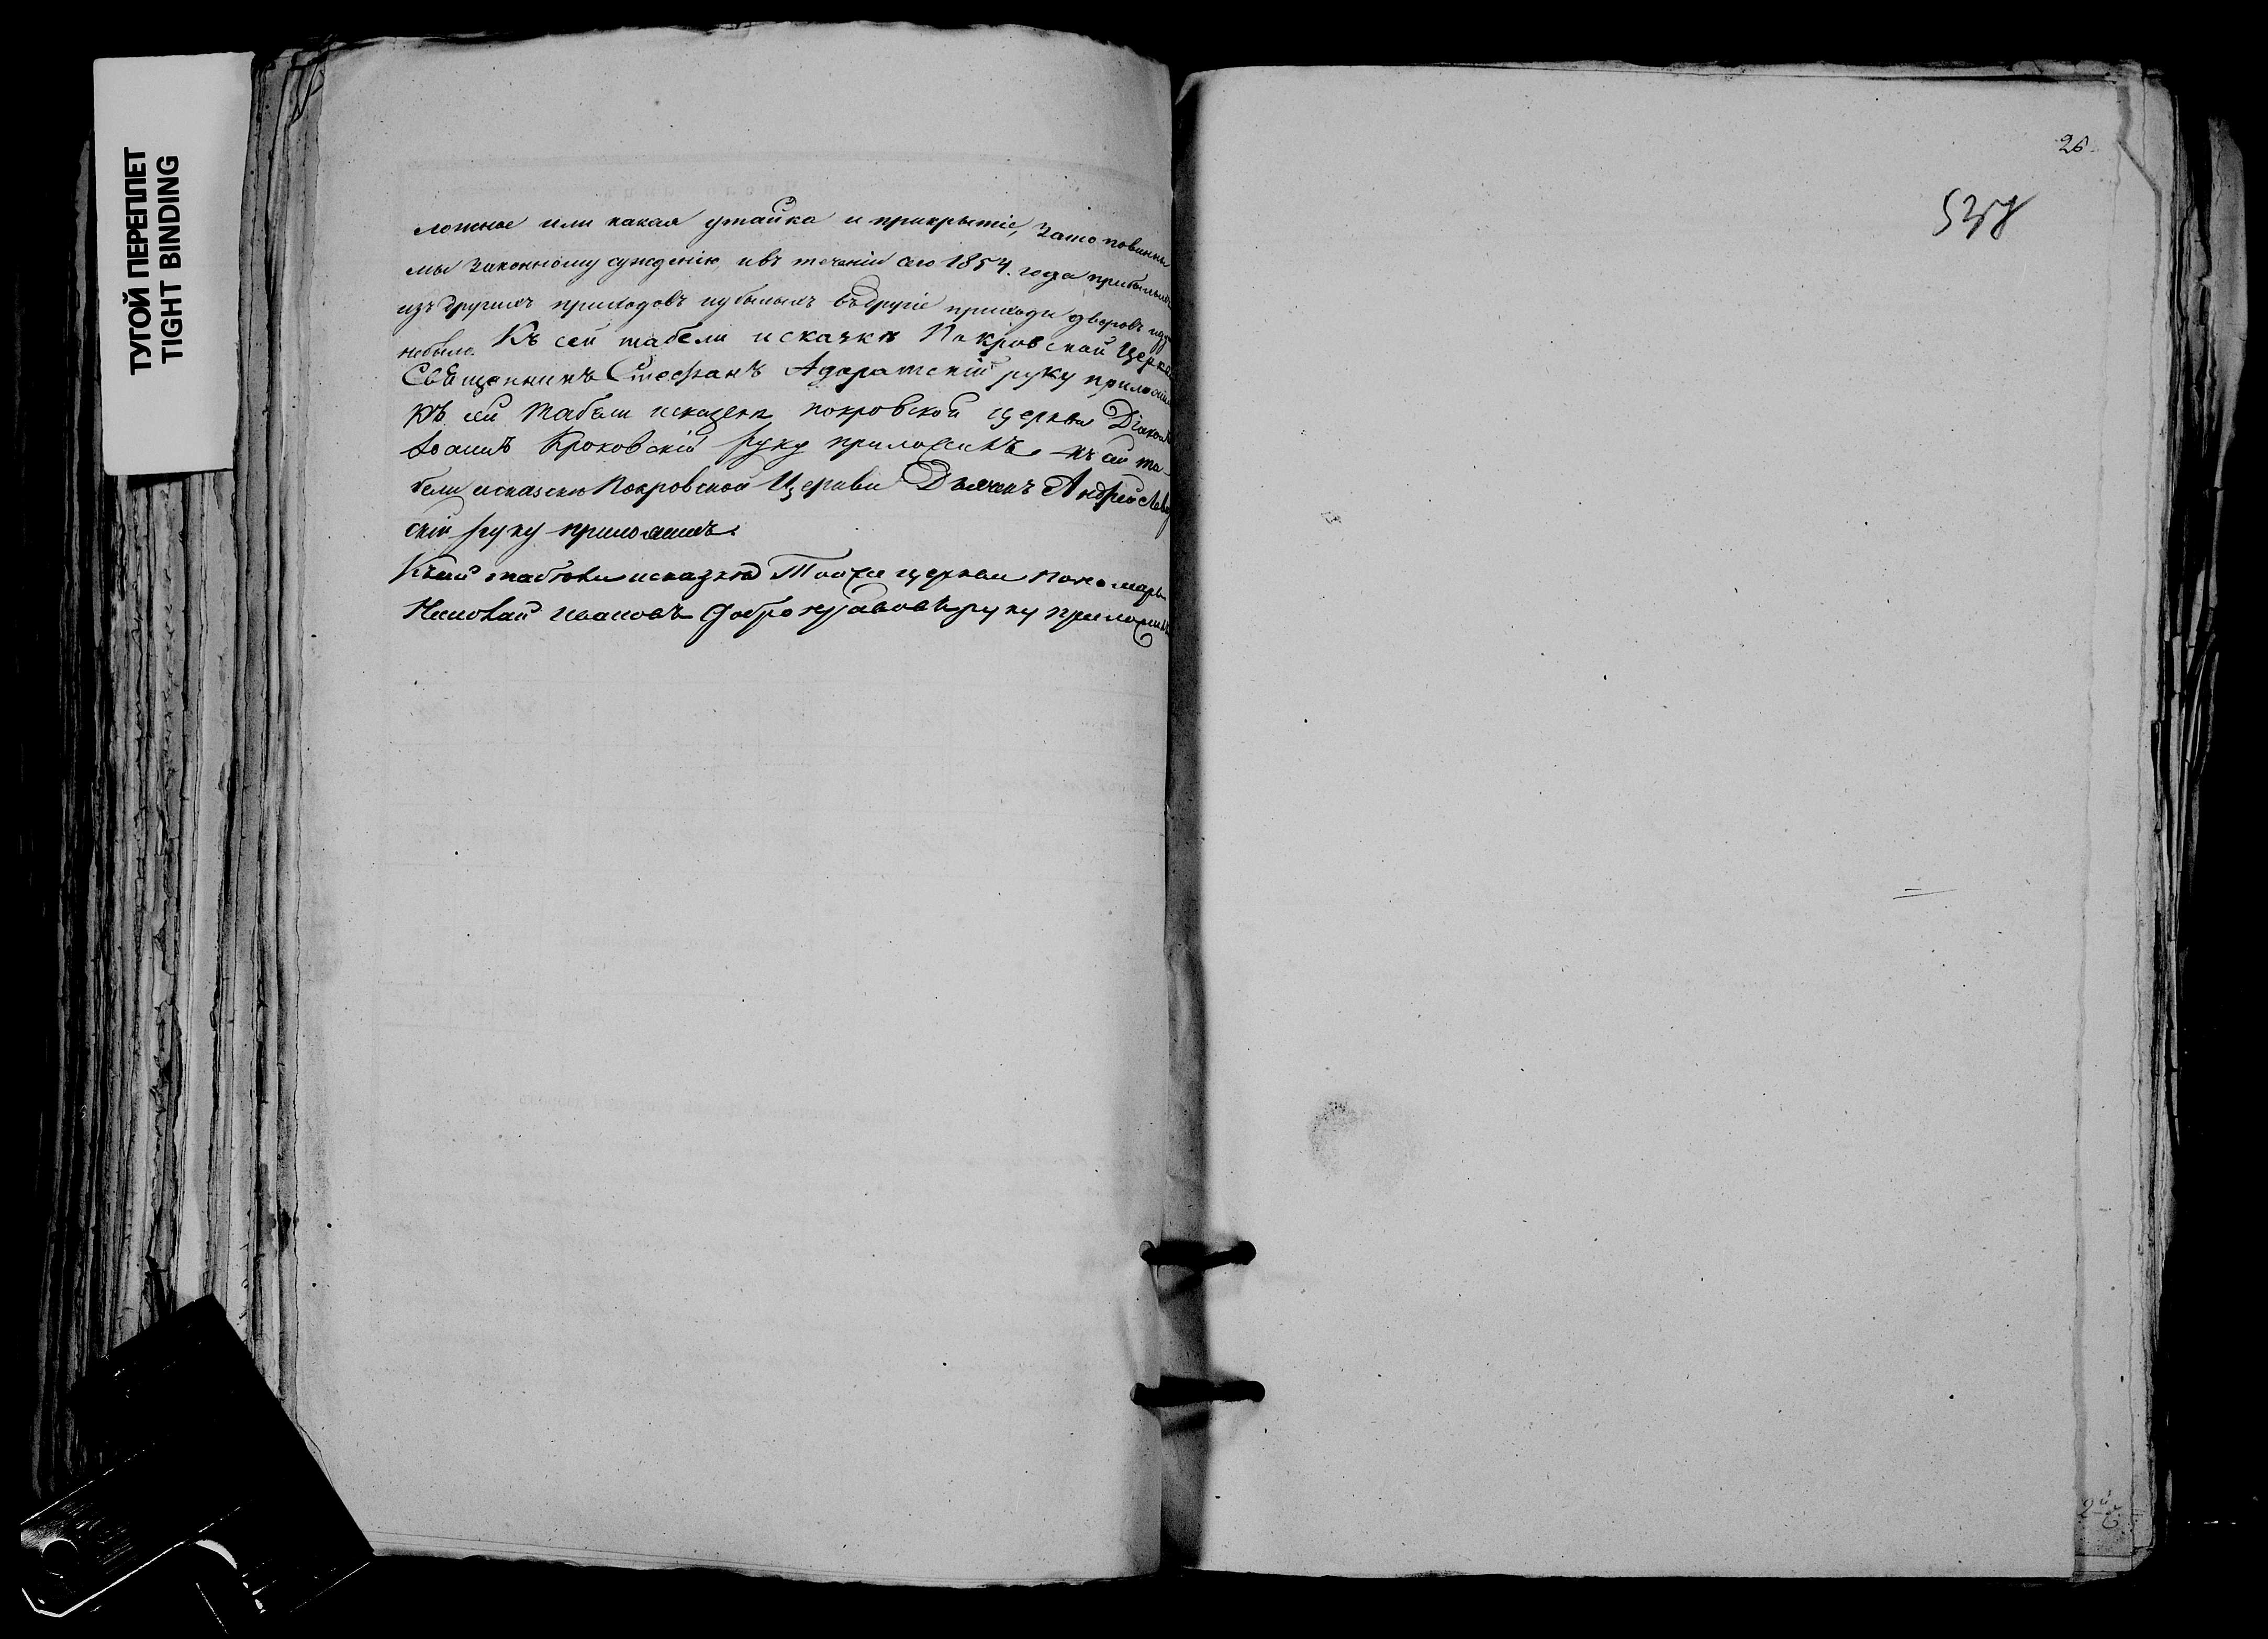 ТУГОЙ ПЕРЕПЛЕТ
TIGHT BINDING
ложное или какая утайка и прикрытіе, зато повинны
мы законному сужденію, ивъ теченіи сего 1854. года прибылыхъ
изъ другихъ приходовъ иубылыхъ въдругіе приходы дворовъ
небыло. Къ сей табели исказкѣ Покровской Церкви
Священникъ Стефанъ руку приложилъ
Къ сей табели исказкѣ покровской церкви Діаконъ
Іоаннъ Кроковскій руку приложилъ. Къ сей та-
бели исказкѣ Покровской Церкви Дьячекъ Андрей
скій руку приложилъ.
Къ сей табели исказкѣ Тойже церкви Пономарь
Николай Ивановъ Добронравовъ руку приложилъ
26.
538